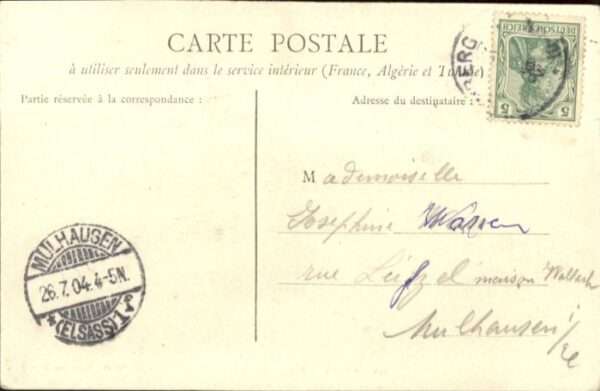 CARTE POSTALE
à utiliser seulement dans le service intérieur (France, Algérie et Tunisie)
Partie réservée à la correspondance :
Adresse du destinataire :
DEUTSCHES REICH
5 5
BERG
Mademoiselle
Josephine
rue maison Wallach
Mulhausen i/E
MÜLHAUSEN
26.7.04.4-5N.
*(ELSASS)1